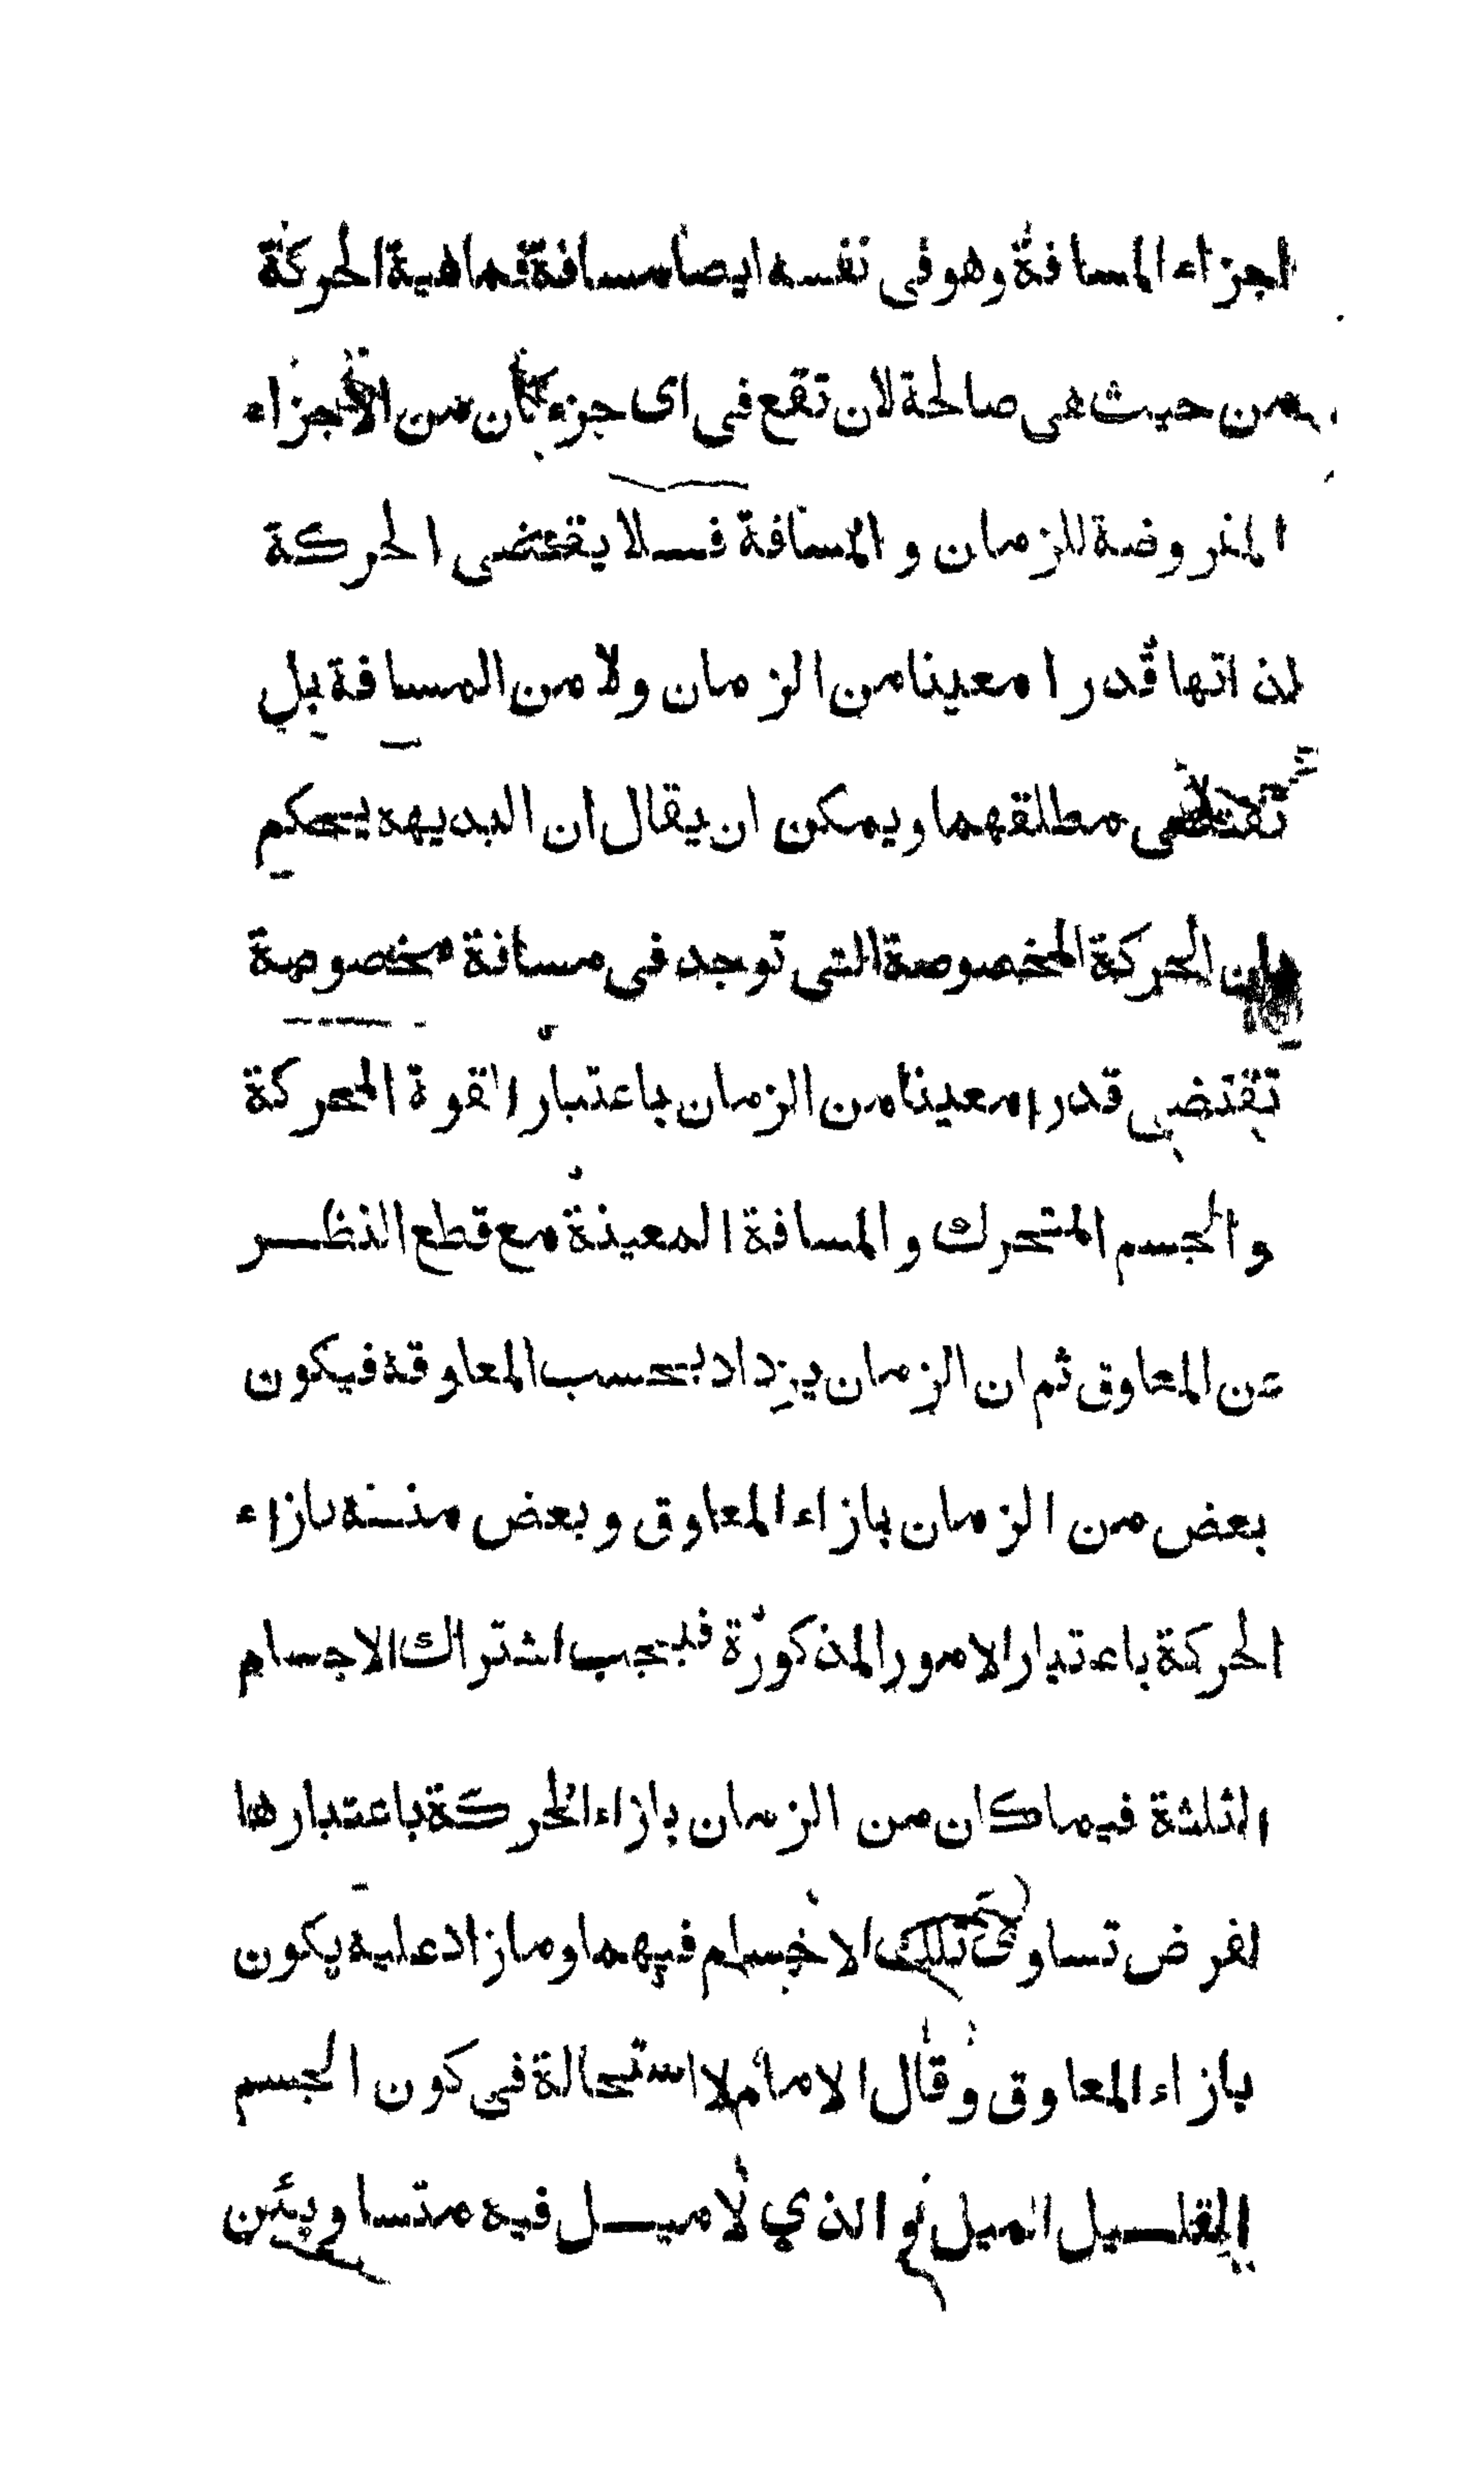 اجزاء المسافة وهو فى نفسه ايضا مسافة فماهية الحركة
من حيث هى صالحة لان تقع فى اى جزء كان من الاجزاء
المفروضة للزمان و المسافة فلا يقتضى الحركة
لذاتها قدرا معينا من الزمان ولا من المسافة بل
تقتضى مطلقهما ويمكن ان يقال ان البديهه يحكم
بان الحركة المخصوصة التى توجد فى مسافة مخصوصة
تقتضى قدرا معينا من الزمان باعتبار القوة المحركة
والجسم المتحرك والمسافة المعينة مع قطع النظر
عن المعاوق ثم ان الزمان يزداد بحسب المعاوقة فيكون
بعض من الزمان بازاء المعاوق وبعض منه بازاء
الحركة باعتبار الامور المذكورة فيجب اشتراك الاجسام
الثلثة فيما كان من الزمان بازاء الحركة باعتبارها
لفرض تساوى تلك الاجسام فيهما وما زاد عليه يكون
بازاء المعاوق وقال الامام لا استحالة فى كون الجسم
القليل الميل و الذي لا ميل فيه متساويين